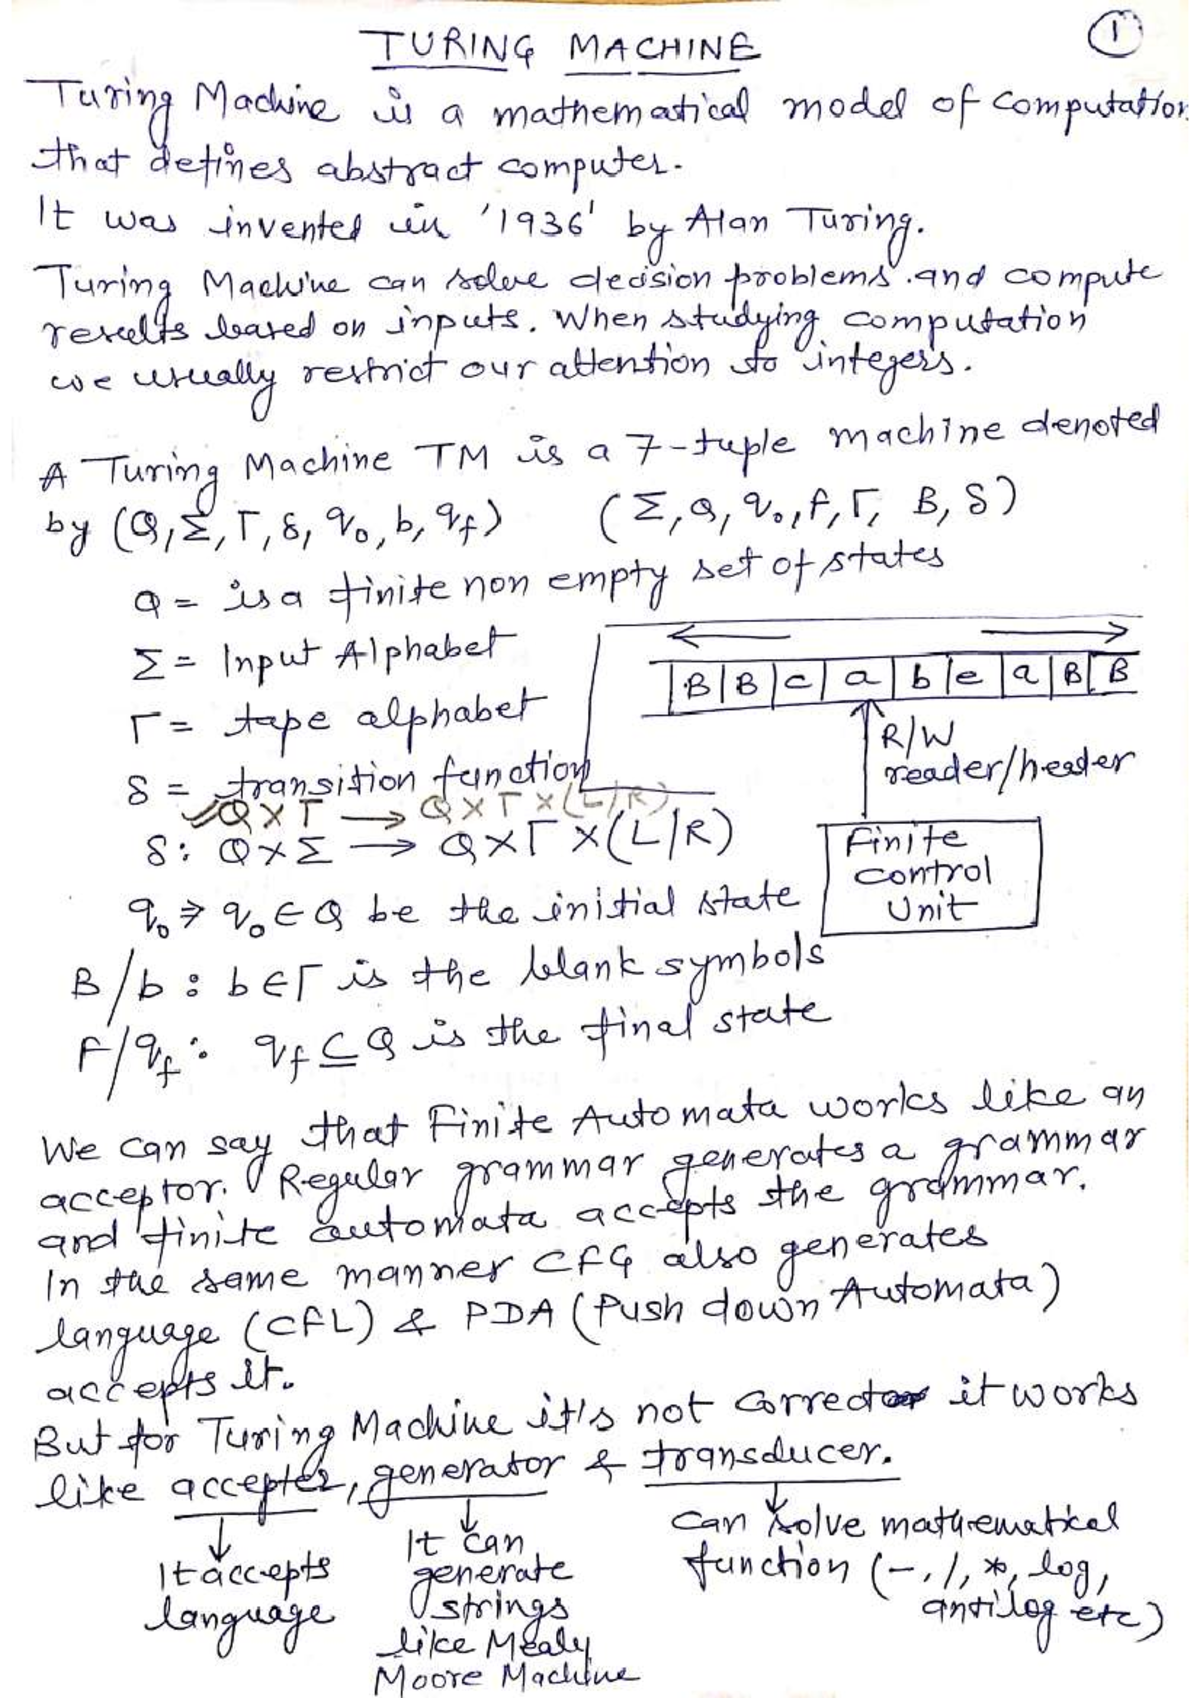 TURING MACHINE
1
Turing Machine is a mathematical model of computation
that defines abstract computer.
It was invented in '1936' by Alan Turing.
Turing Machine can solve decision problems and compute
results based on inputs. When studying computation
we usually restrict our attention to integers.
A Turing Machine TM is a 7-tuple machine denoted
by (Q, Σ, Γ, δ, q₀, b, q_f) (Σ, Q, q₀, F, Γ, B, δ)
Q = is a finite non empty set of states
Σ = Input Alphabet
Γ = tape alphabet
δ = transition function
Q×Γ → Q×Γ×(L/R)
δ: Q×Σ → Q×Γ×(L/R)
B|B|c|a|b|e|a|B|B
R/W
reader/header
Finite
control
Unit
q₀ ⇒ q₀ ∈ Q be the initial state
B/b : b∈Γ is the blank symbols
F/q_f : q_f ⊆ Q is the final state
We can say that Finite Automata works like an
acceptor. Regular grammar generates a grammar
and finite automata accepts the grammar.
In the same manner CFG also generates
language (CFL) & PDA (Push down Automata)
accepts it.
But for Turing Machine it's not correct it works
like accepter, generator & transducer.
It accepts
language
It can
generate
strings
like Mealy
Moore Machine
can solve mathematical
function (-, /, *, log,
antilog etc)